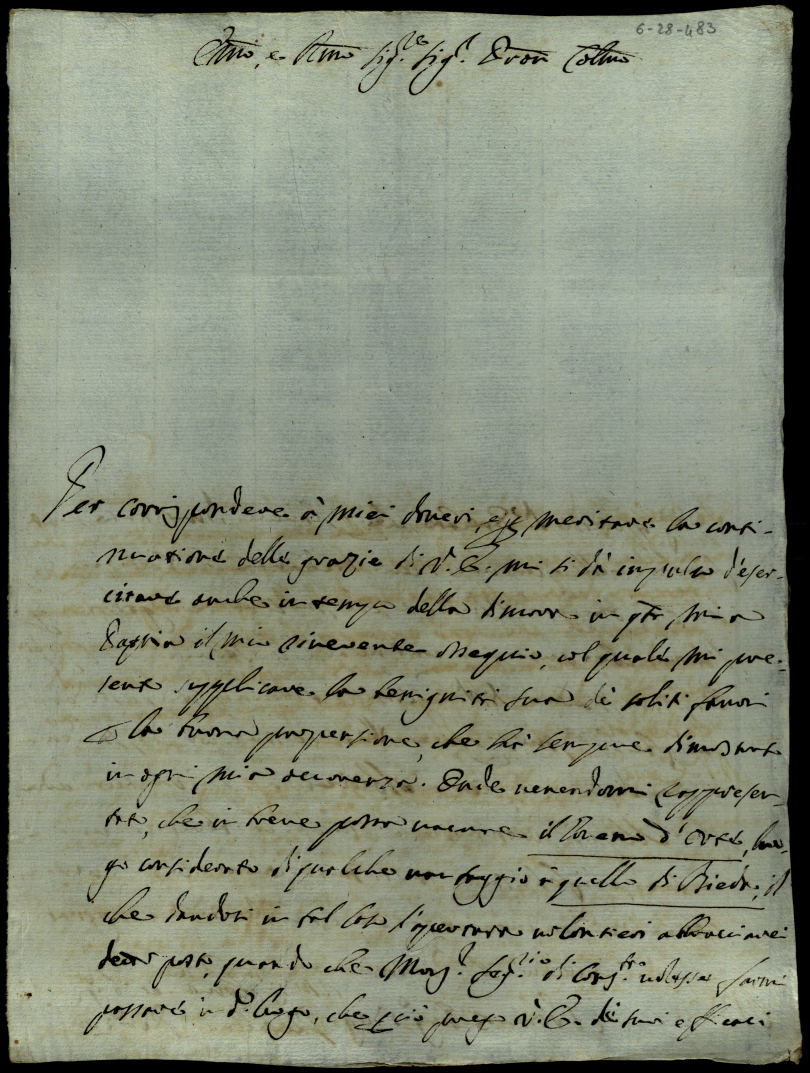 6-28-483
Emo, e Rmo Sig.re Sig.r Pron Colmo
Per corrispondere à miei doveri, e meritare la conti-
nuatione delle grazie di V.E. mi si dà impulso d'eser-
citare anche in tempo della dimora in qta mia
Patria il mio riverente ossequio, col quale mi pre-
sento supplicare la benignità sua de soliti favori
la buona propensione, che hà sempre dimostrato
in ogni mia occorrenza. Onde venendomi rappresen-
tato, che in breve possa vacare il Governo d'Orte, luo-
go considerato di qualche vantaggio à quello di Bieda, il
che dandosi in tal caso l'apertura volontieri abbraccierei
detto posto, quando che Mons.r Seg.rio di Cons.ta volesse farmi
passare in d.o luogo, che perciò prego V.E. de suoi efficaci